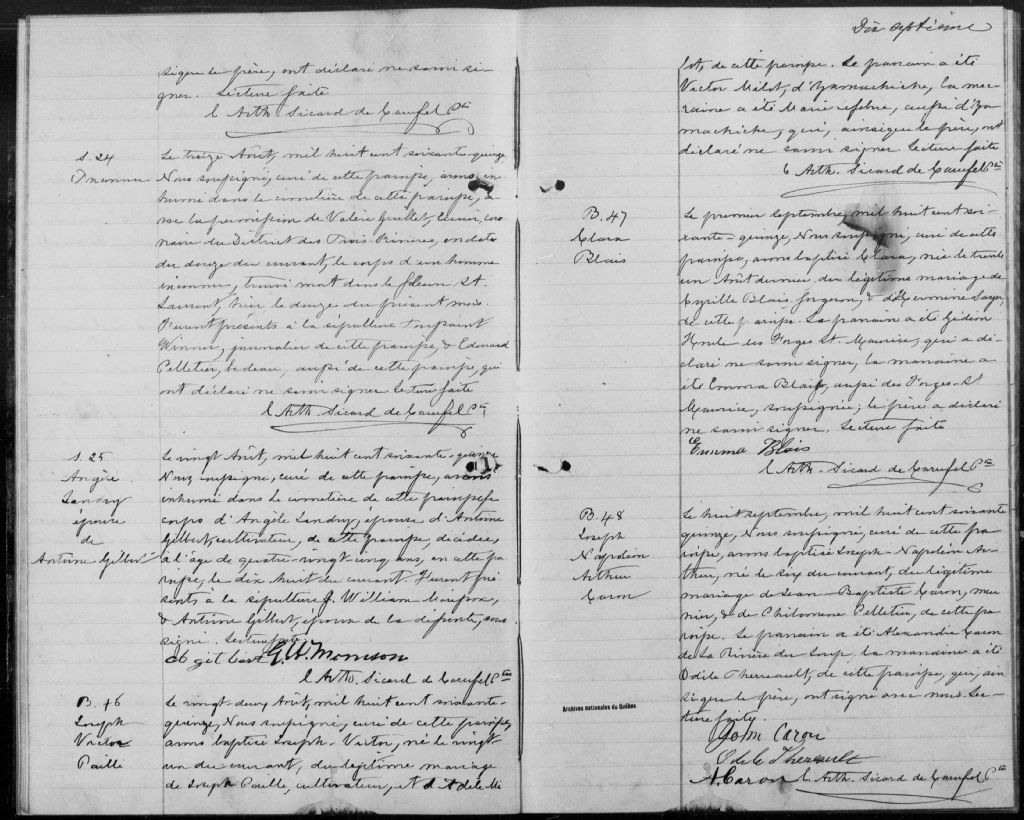 sique le père, ont déclaré ne savoir si-
gner. Lecture faite
L Arth. Sicard de Carufel Ptre
S. 24
Inconnu
Le treize Août, mil huit cent soixante-quinze,
Nous soussigné, curé de cette paroisse, avons in-
humé dans le cimetière de cette paroisse, a-
vec la permission de Valère Guillet, Ecuier, coro-
naire du District des Trois-Rivières, en date
du douze du courant, le corps d'un homme
inconnu, trouvé mort dans le fleuve St.
Laurent, hier le douze du présent mois.
Furent présents à la sépulture Toussaint
journalier de cette paroisse, & Edouard
Pelletier, bedeau, aussi de cette paroisse, qui
ont déclaré ne savoir signer. Lecture faite
L Arth. Sicard de Carufel Ptre
S. 25
Angèle
Landry
épouse
de
Antoine Gilbert
Le vingt Août, mil huit cent soixante-quinze
Nous soussigné, curé de cette paroisse, avons
inhumé dans le cimetière de cette paroisse le
corps d'Angèle Landry, épouse d'Antoine
Gilbert, cultivateur, de cette paroisse, décédée,
à l'âge de quatre-vingt-cinq ans, en cette pa-
roisse, le dix huit du courant. Furent pré-
sents à la sépulture G. William
& Antoine Gilbert, époux de la défunte, sous-
signé. Lecture faite
G. W. Morrison
L Arth. Sicard de Carufel Ptre
B. 46
Joseph
Victor
Paille
Le vingt-deux Août, mil huit cent soixante-
quinze, Nous soussigné, curé de cette paroisse,
avons baptisé Joseph-Victor, né le vingt-
un du courant, du légitime mariage
de Joseph Paille, cultivateur, et d'Adèle Mi
Dix septième
lot, de cette paroisse. Le parrain a été
Victor Milot, d'Yamachiche, la mar-
raine a été Marie Lefebvre, aussi d'Ya
machiche, qui, ainsique le père, ont
déclaré ne savoir signer. Lecture faite
L Arth. Sicard de Carufel Ptre
B. 47
Clara
Blais
Le premier septembre, mil huit cent soi-
xante-quinze, Nous soussigné, curé de cette
paroisse, avons baptisé Clara, née le trente
un Août dernier, du légitime mariage de
Cyrille Blais forgeron, & d'Hermine
de cette paroisse. Le parrain a été Gédéon
des Forges St. Maurice, qui a dé-
claré ne savoir signer, la marraine a
été Emma Blais, aussi des Forges St
Maurice, soussignée; le père a déclaré
ne savoir signer. Lecture faite
Emma Blais
L Arth. Sicard de Carufel Ptre
B. 48
Joseph
Napoléon
Arthur
Caron
Le huit septembre, mil huit cent soixante
quinze, Nous soussigné, curé de cette pa-
roisse, avons baptisé Joseph-Napoléon Ar-
thur, né le six du courant, du légitime
mariage de Jean-Baptiste Caron, meu-
nier, & de Philomène Pelletier, de cette pa
roisse. Le parrain a été Alexandre Caron
de La Rivière du Loup, la marraine a été
Odile Therreault, de cette paroisse, qui, ain
sique le père, ont signé avec nous. Lec-
ture faite.
John Caron
Odile Thereault
A. Caron L Arth. Sicard de Carufel Ptre
Archives nationales du Québec